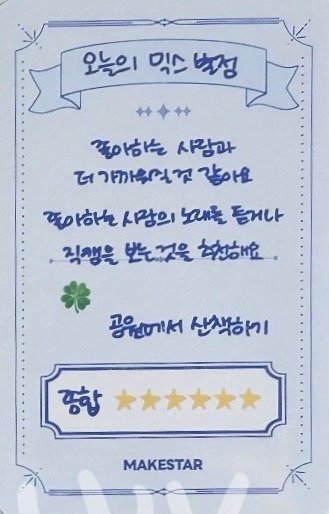 오늘의 믹스 별점
좋아하는 사람과
더 가까워질 것 같아요
좋아하는 사람의 노래를 듣거나
직캠을 보는 것을 추천해요
공원에서 산책하기
종합 ★★★★★★
MAKESTAR